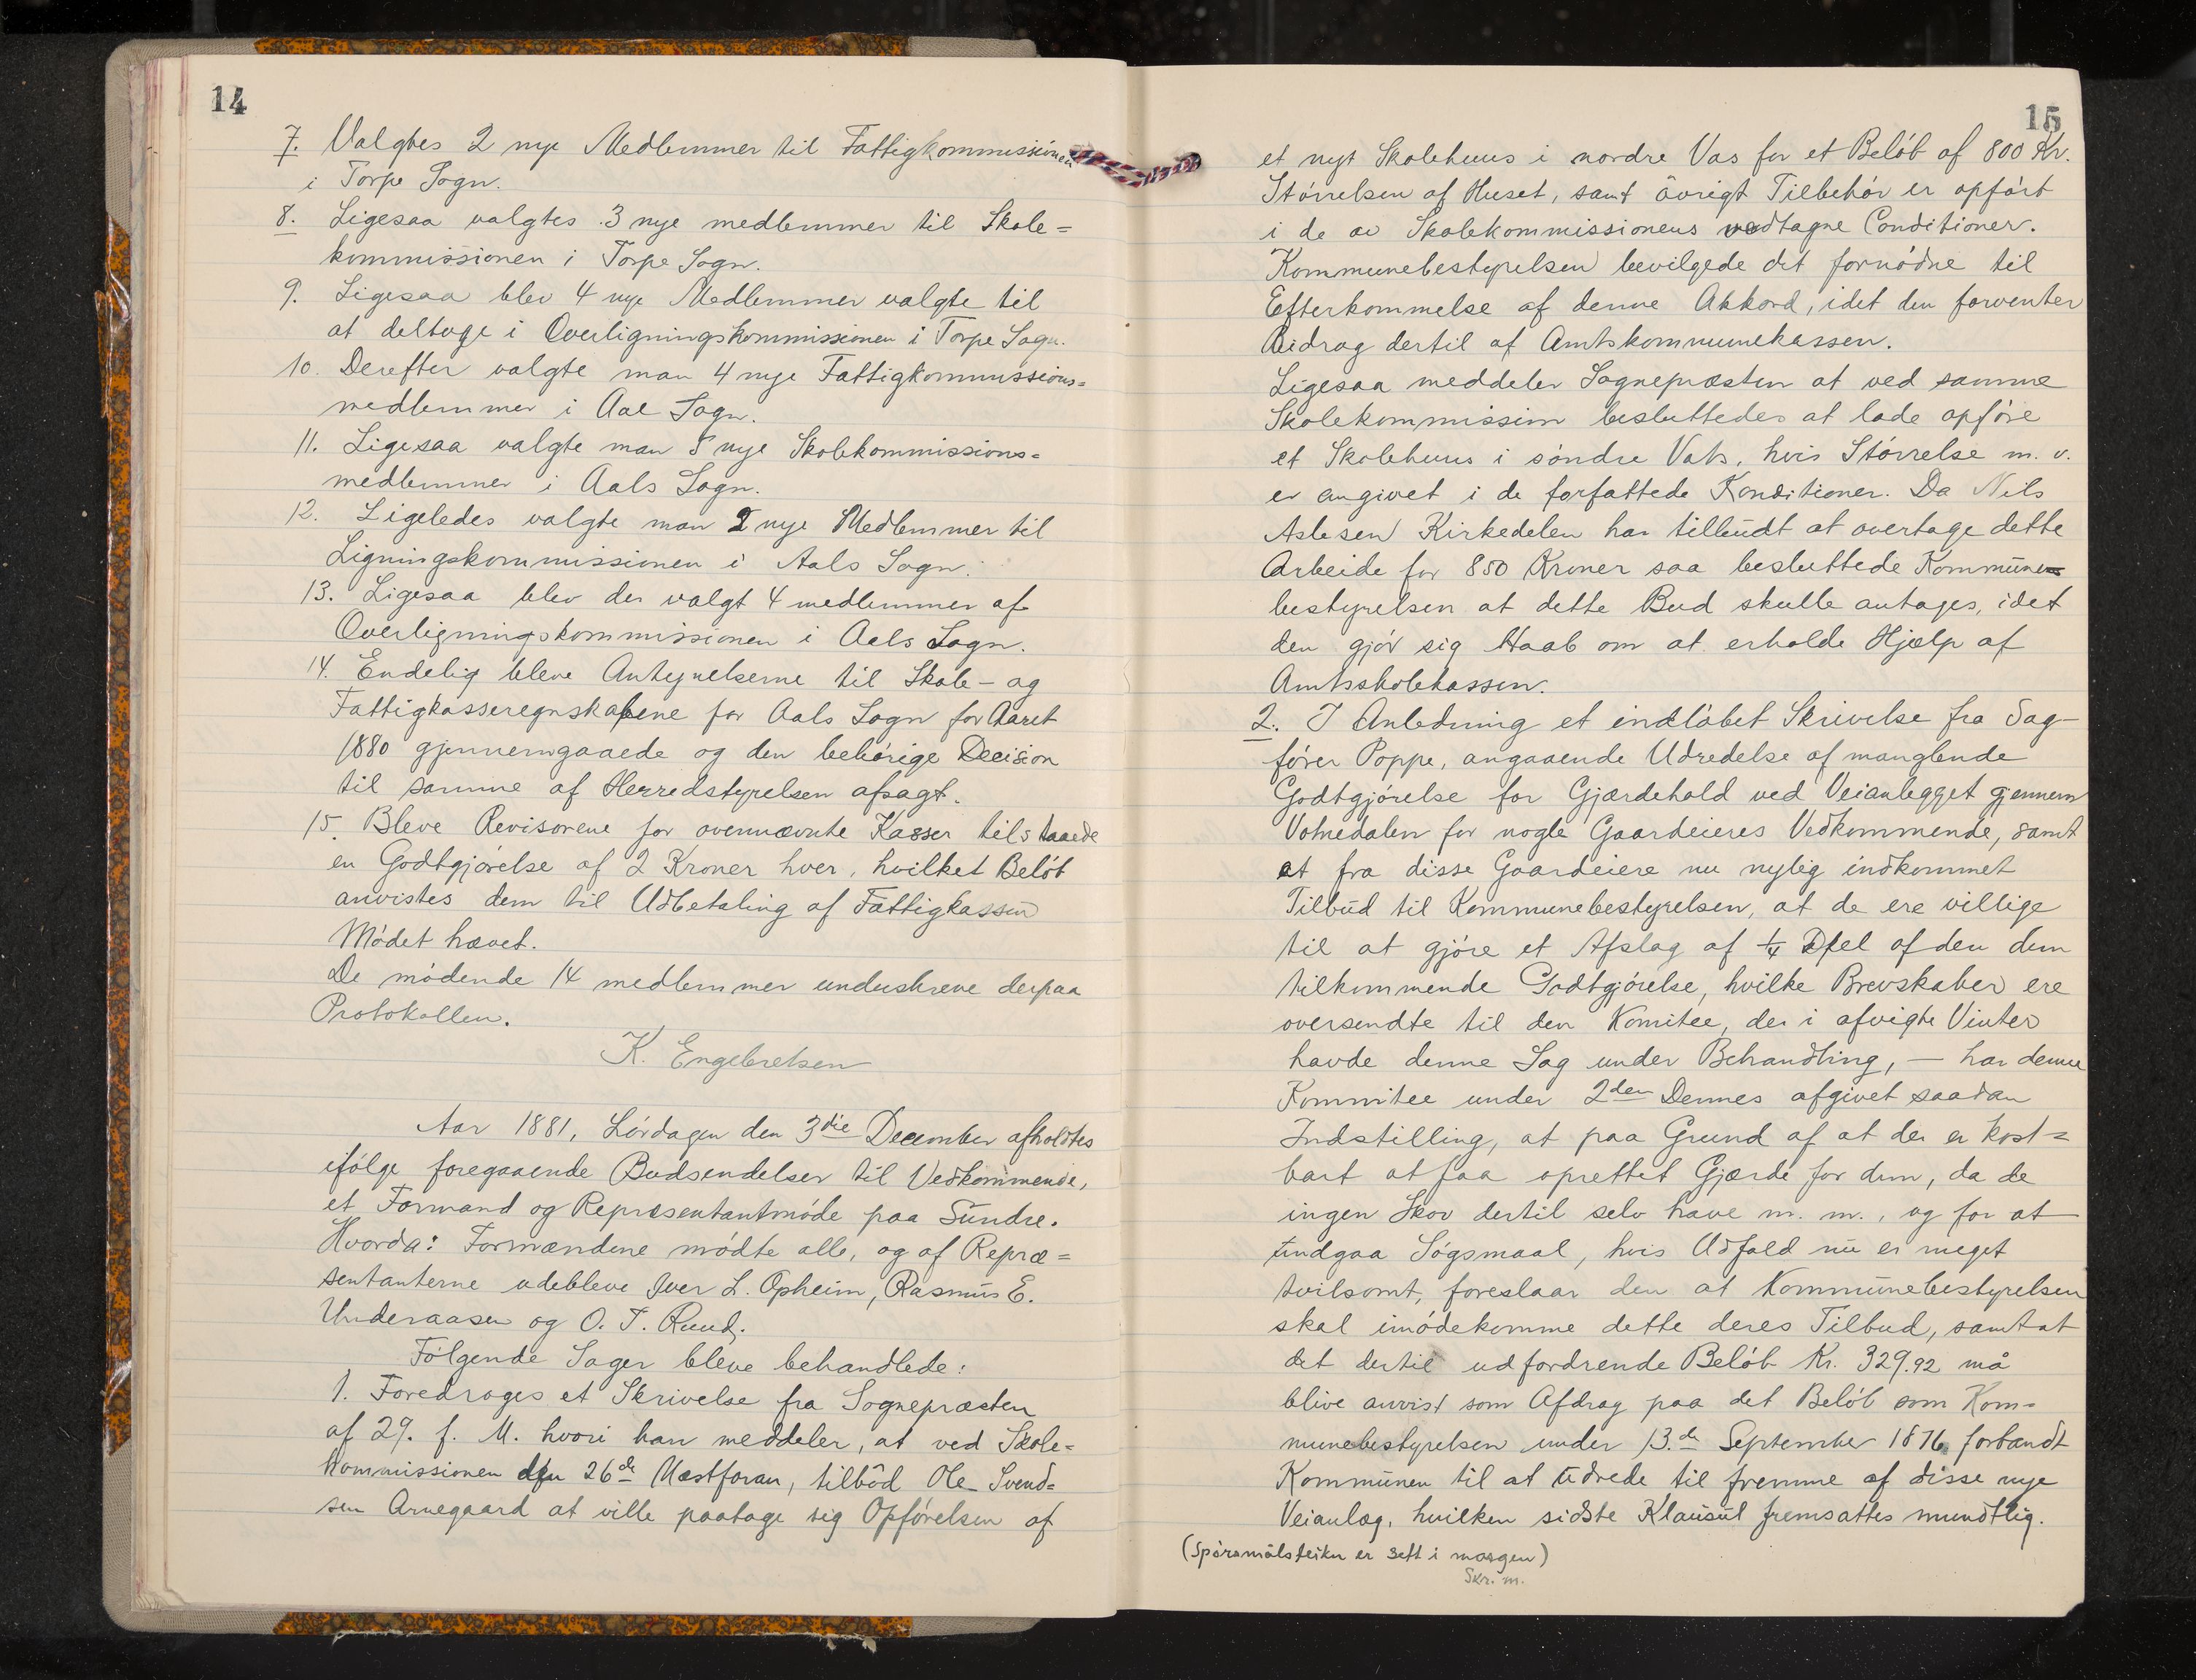 14
7. Valgtes 2 nye Medlemmer til Fattigkommissionen
i Torpe Sogn.
8. Ligesaa valgtes 3 nye medlemmer til Skole=
kommissionen i Torpe Sogn.
9. Ligesaa blev 4 nye Medlemmer valgte til
at deltage i Overligningskommissionen i Torpe Sogn.
10. Derefter valgte man 4 nye Fattigkommissions=
medlemmer i Aal Sogn.
11. Ligesaa valgte man 5 nye Skolekommissions=
medlemmer i Aals Sogn.
12. Ligeledes valgte man 2 nye Medlemmer til
Ligningskommissionen i Aals Sogn.
13. Ligesaa blev der valgt 4 medlemmer af
Overligningskommissionen i Aals Sogn.
14. Endelig bleve Antegnelserne til Skole- og
Fattigkasseregnskabene for Aals Sogn for Aaret
1880 gjennemgaaede og den behørige Decision
til samme af Herredstyrelsen afsagt.
15. Bleve Revisorene for ovennævnte Kasser tilstaaede
en Godtgjørelse af 2 Kroner hver, hvilket Beløb
anvistes dem til Udbetaling af Fattigkassen
Mødet hævet.
De mødende 14 medlemmer underskreve derpaa
Protokollen.
K. Engebretsen
Aar 1881, Lørdagen den 3die December afholdtes
ifølge foregaaende Budsendelser til Vedkommende,
et Formand og Repræsentantmøde paa Sundre.
Hvorda: Formændene mødte alle, og af Repræ=
sentanterne udebleve Iver L. Opheim, Rasmus E.
Underaasen og O. T. Ruud.
Følgende Sager bleve behandlede:
1. Foredroges et Skrivelse fra Sognepræsten
af 29. f. M. hvori han meddeler, at ved Skole=
kommissionen den 26de Næstforan, tilbød Ole Svend=
sen Arnegaard at ville paatage sig Opførelsen af
15
et nyt Skolehuus i nordre Vas for et Beløb af 800 Kr.
Størrelsen af Huset, samt øvrigt Tilbehør er opført
i de av Skolekommissionens vedtagne Conditioner.
Kommunebestyrelsen bevilgede det fornødne til
Efterkommelse af denne Akkord, idet den forventer
Bidrag dertil af Amtskommunekassen.
Ligesaa meddeler Sognepræsten at ved samme
Skolekommission besluttedes at lade opføre
et Skolehuus i søndre Vats, hvis Størrelse m. v.
er angivet i de forfattede Konditioner. Da Nils
Aslesen Kirkedelen har tilbudt at overtage dette
Arbeide for 850 Kroner saa besluttede Kommune=
bestyrelsen at dette Bud skulle antages, idet
den gjør sig Haab om at erholde Hjælp af
Amtsskolekassen.
2. I Anledning et indløbet Skrivelse fra Sag-
fører Poppe, angaaende Udredelse af manglende
Godtgjørelse for Gjærdehold ved Veianlegget gjennem
Votnedalen for nogle Gaardeieres Vedkommende, samt
at fra disse Gaardeiere nu nylig indkommet
Tilbud til Kommunebestyrelsen, at de ere villige
til at gjøre et Afslag af 1/4 Del af den dem
tilkommende Godtgjørelse, hvilke Brevskaber ere
oversendte til den Komitee, der i afvigte Vinter
havde denne Sag under Behandling, — har denne
Kommitee under 2den Dennes afgivet saadan
Indstilling, at paa Grund af at der er kost=
bart at faa oprettet Gjærde for dem, da de
ingen Skov dertil selv have m. m., og for at
undgaa Søgsmaal, hvis Udfald nu er meget
tvilsomt, foreslaar den at Kommunebestyrelsen
skal imødekomme dette deres Tilbud, samt at
det dertil udfordrende Beløb Kr. 329.92 må
blive anvist som Afdrag paa det Beløb som Kom=
munebestyrelsen under 13.de September 1876 forbandt
Kommunen til at udrede til fremme af disse nye
Veianlæg, hvilken sidste Klausul fremsattes mundtlig.
(Spørsmålsteikn er sett i margen)
Skr. m.